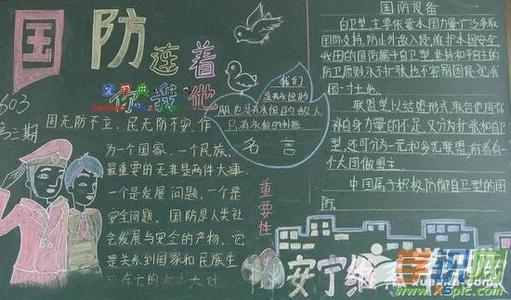 国防连着
你我他
603
第三期
国无防不立，民无防不安。作
为一个国家、一个民族，
最重要的无非是两件大事，
一个是发展问题，一个是
安全问题。国防是人类社
会发展与安全的产物，它
是关系到国家和民族生
我们
没有永恒的
朋友，也没有永恒的敌人
只有永恒的利益
名言
重要性
国防设备
自卫型，主要依靠本国力量，广泛争取
国际支持，防止外敌入侵，维护本国安全。
我国的国防属于自卫型，坚持和平自主的
防卫原则，永不扩张，也不容别国侵犯我
国一寸土地。
联盟型，以结盟形式，联合他国弥
补自身力量的不足，又分为扩张和自卫
型，还可分为一元和多元联盟，前者有一
个大国做盟主。
中国属于积极防御自卫型的国
防
安宁
学识网
xspic.com